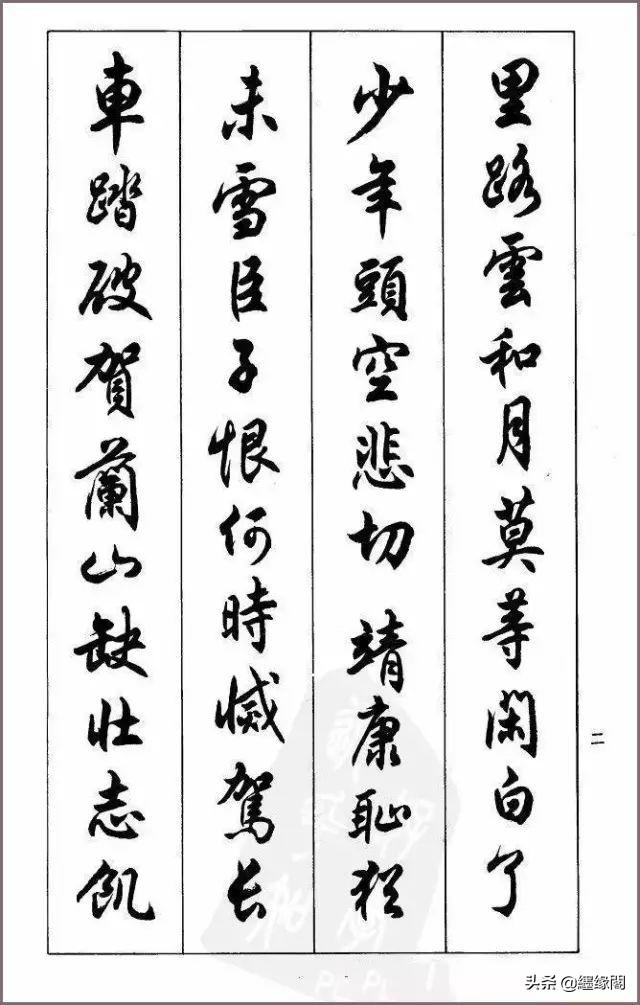 里路雲和月莫等閑白了
少年頭空悲切靖康恥猶
未雪臣子恨何時憾駕长
車踏破賀蘭山缺壯志飢
二
头条 @缠缘閣